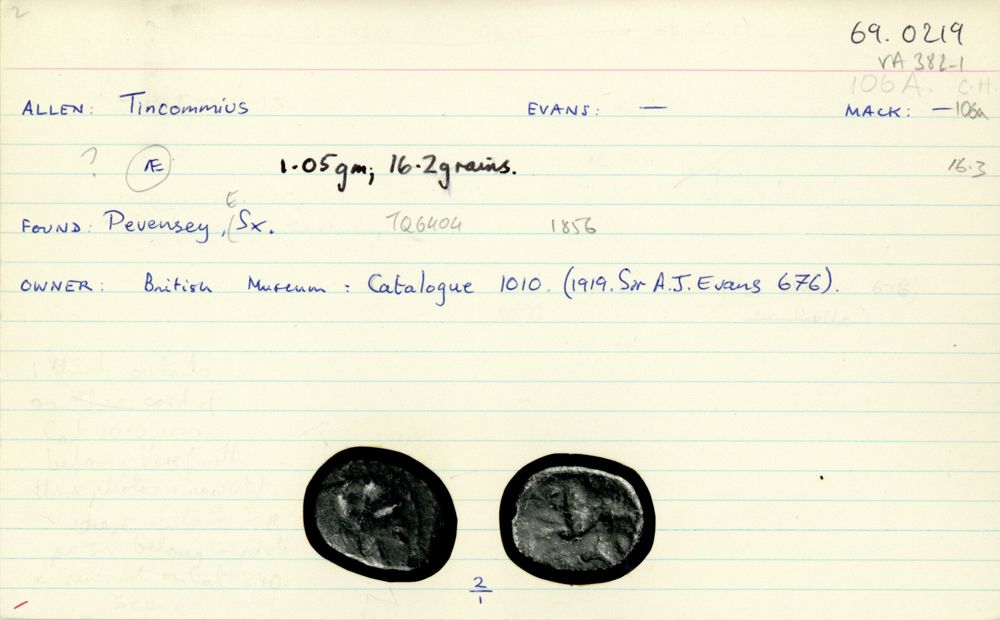 2
69.0219
VA 382-1
106A. C.H.
ALLEN: Tincommius EVANS: — MACK: — 106a
? Æ 1.05gm; 16.2grains. 16.3
FOUND: Pevensey, (E. Sx. TQ6404 1856
OWNER: British Museum: Catalogue 1010. (1919. Sir A.J. Evans 676).
2/1